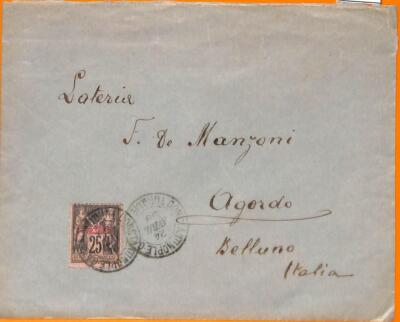 Lateria
F. De Manzoni
Agordo
Belluno
Italia
25